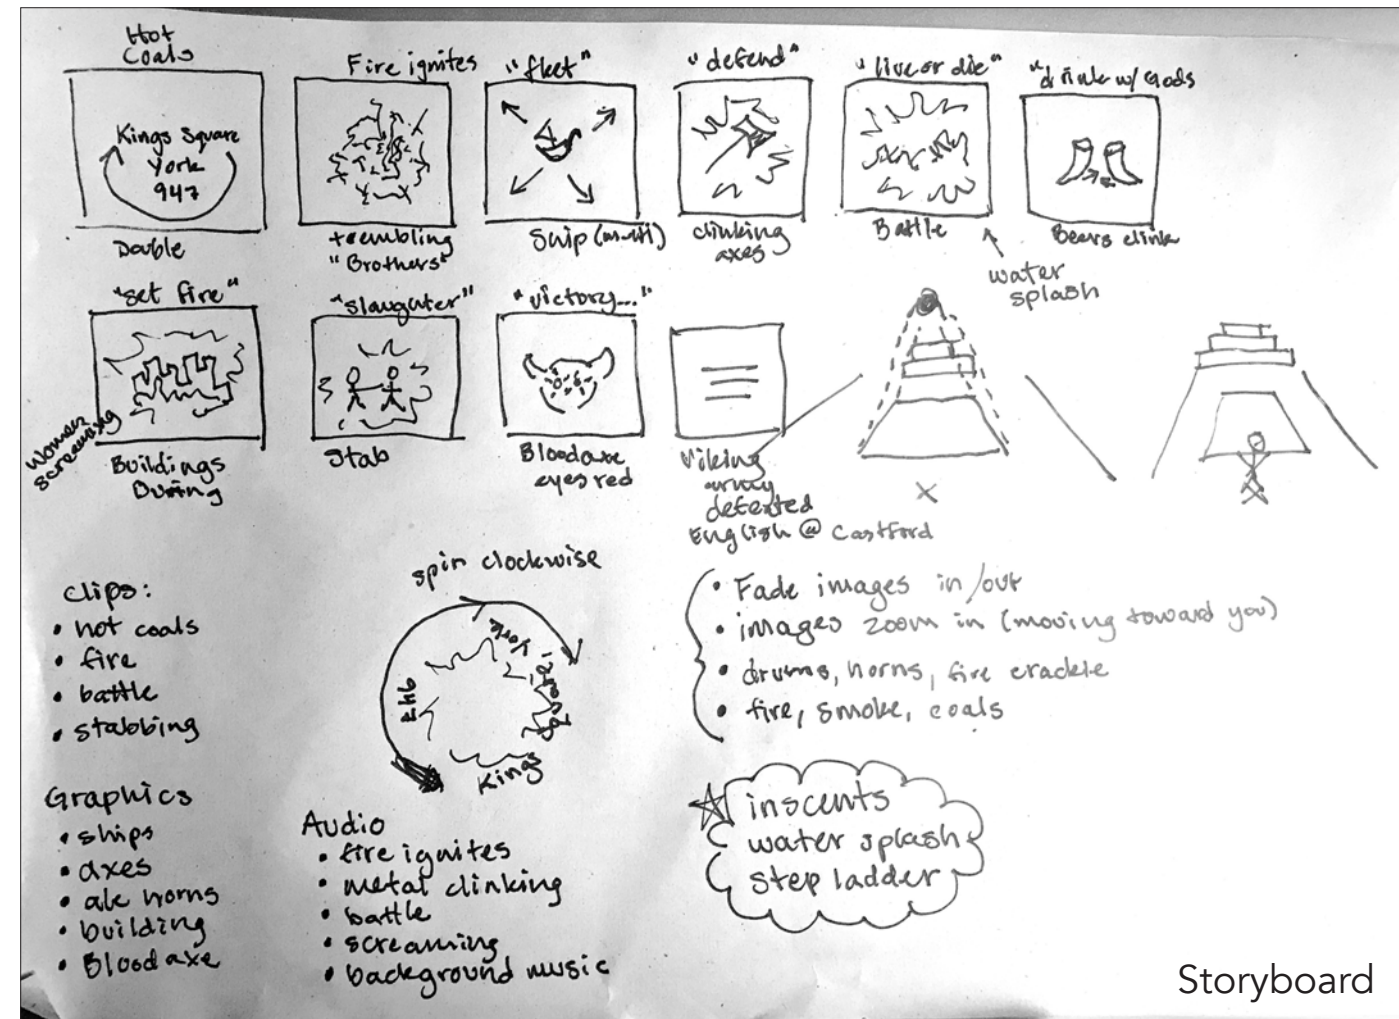 Hot
Coals
Kings Square
York
947
Double
Fire ignites
trembling
"Brothers"
"fleet"
Ship (multi)
"defend"
clinking
axes
"live or die"
Battle
water
splash
"drink w/ Gods
Beers clink
"set fire"
Women
screaming
Buildings
Burning
"slaughter"
Stab
"victory..."
Bloodaxe
eyes red
Viking
army
defeated
English @ Castford
Clips:
• hot coals
• fire
• battle
• stabbing
Graphics
• ships
• axes
• ale horns
• building
• Bloodaxe
spin clockwise
Kings
Square,
York
947
Audio
• fire ignites
• metal clinking
• battle
• screaming
• background music
• Fade images in/out
• images zoom in (moving toward you)
• drums, horns, fire crackle
• fire, smoke, coals
inscents
water splash
step ladder
Storyboard